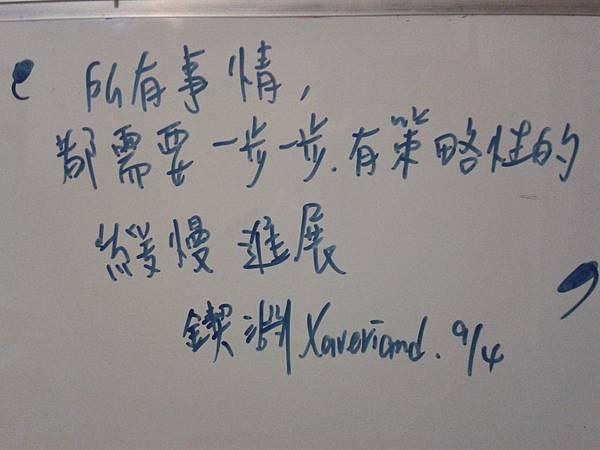 所有事情,
都需要一步一步.有策略性的
緩慢進展
鍥淵 Xaveriand. 9/4